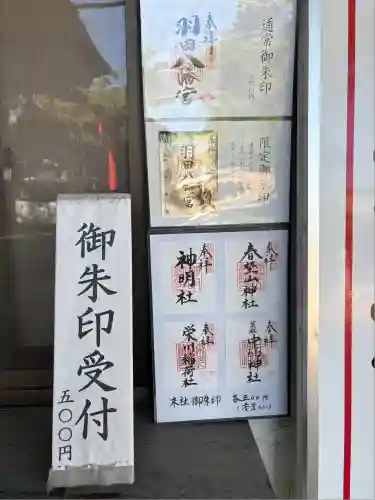 通常御朱印
五〇〇円
奉拝
羽田八幡宮
限定御朱印
奉拝
羽田八幡宮
奉拝
春埜山神社
奉拝
神明社
奉拝
奉拝
栄川稲荷社
末社御朱印
各五〇〇円
御朱印受付
五〇〇円